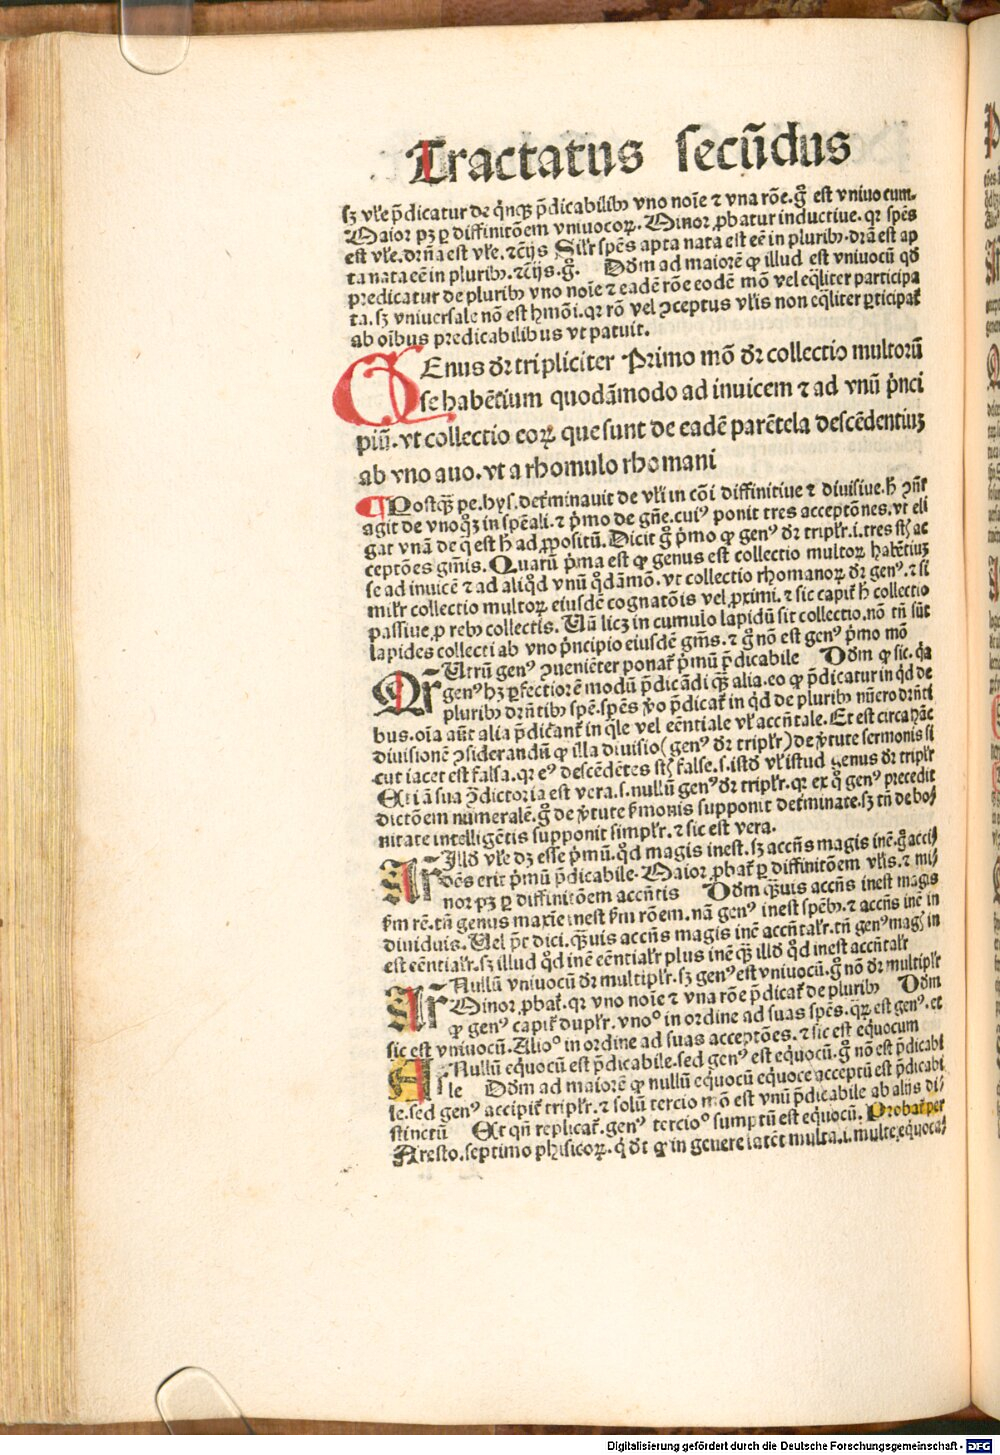 Tractatus secũdus
sꝫ vl'e p̃dicatur de q̇nqꝫ p̃dicabilibꝰ vno noĩe ⁊ vna rõe.g̊ est vniuocum.
Maior pꝫ ꝑ diffinitõem vniuocoꝝ. Minor ꝓbatur inductiue. qꝛ spẽs
est vl'e. drña est vl'e. ⁊cijs Sil'r spẽs apta nata est eẽ in pluribꝰ. drñã est ap
ta nata eẽ in pluribꝰ. ⁊cijs.g̊. Dõm ad maiorẽ ꝙ illud est vniuocũ qd̓
predicatur de pluribꝰ vno noĩe ⁊ eadẽ rõe eodẽ mõ vel eq̃liter participa
ta. sꝫ vniuersale nõ est hmõi. qꝛ rõ vel ꝯceptus vl'is non eq̃liter ꝑticipat̃
ab oĩbus predicabilibus vt patuit.
GEnus dr̃ tripliciter Primo mõ dr̃ collectio multorũ
se habẽtium quodãmodo ad inuicem ⁊ ad vnũ p̃nci
piũ. vt collectio eoꝝ que sunt de eadẽ parẽtela descẽdentiuꝫ
ab vno auo. vt a rhomulo rhomani
¶Postq̃ꝫ pe. hys. det̃minauit de vl'i in cõi diffinitiue ⁊ diuisiue. h̃ ꝯñt̃
agit de vnoq̊ꝫ in spẽali. ⁊ p̃mo de gñe. cuiꝰ ponit tres acceptõnes. vt eli
gat vnã de q̃ est h̃ ad ꝓpositũ. Dicit g̊ p̃mo ꝙ genꝰ dr̃ tripl'r. i. tres st̃ ac
ceptões gñis. Quarũ p̃ma est ꝙ genus est collectio multoꝝ habẽtiuꝫ
se ad inuicẽ ⁊ ad aliq̇d vnũ q̊dãmõ. vt collectio rhomanoꝝ dr̃ genꝰ. ⁊ si
mil'r collectio multoꝝ eiusdẽ cognatõis vel ꝓximi. ⁊ sic capit̃ h̃ collectio
passiue ꝓ rebꝰ collectis. Uñ licꝫ in cumulo lapidũ sit collectio. nõ tñ sũt
lapides collecti ab vno p̃ncipio eiusdẽ gñis. ⁊ g̊ nõ est genꝰ p̃mo mõ
Qr̃ Utrũ genꝰ ꝯueniẽter ponat̃ p̃mũ p̃dicabile Dõm ꝙ sic. q̃a
genꝰ hꝫ ꝑfectiorẽ modũ p̃dicãdi q̃ꝫ alia. eo ꝙ p̃dicatur in q̇d de
pluribꝰ drñtibꝰ spẽ. spẽs v̊o p̃dicat̃ in q̇d de pluribꝰ nũero drñti
bus. oĩa aũt alia p̃dicãnt̃ in q̃le vel eẽntiale vl' accñtale. Et est circa hãc
diuisionẽ ꝯsiderandũ ꝙ illa diuisio (genꝰ dr̃ tripl'r) de v̓tute sermonis si
cut iacet est falsa. qꝛ eꝰ descẽdẽtes st̃ false. s. istd̓ vl' istud genus dr̃ tripl'r
Et iã sua ꝯ̃dictoria est vera. s. nullũ genꝰ dr̃ tripl'r. qꝛ ex q̊ genꝰ precedit
dictõem numeralẽ. g̊ de v̓tute s̓monis supponit det̃minate. sꝫ tñ de bo
nitate intelligẽtis supponit simpl'r. ⁊ sic est vera.
Ar̃ Illd̓ vl'e dꝫ esse p̃mũ. qd̓ magis inest. sꝫ accñs magis inẽ. g̊ acci
dẽs erit p̃mũ p̃dicabile. Maior ꝓbat̃ ꝑ diffinitõem vl'is. ⁊ mi
nor pꝫ ꝑ diffinitõem accñtis Dõm q̃ꝫuis accñs inest magis
s̓m rẽ. tñ genus maxĩe inest s̓m rõem. nã genꝰ inest spẽbꝰ. ⁊ accñs inẽ in
diuiduis. Uel p̃t dici. q̃ꝫuis accñs magis inẽ accñtal'r. tñ genꝰ mag̓ in
est eẽntial'r. sꝫ illud qd̓ inẽ eẽntial'r plus inẽ q̃ꝫ illd̓ qd̓ inest accñtal'r
Ar̃ Nullũ vniuocũ dr̃ multipl'r. sꝫ genꝰ est vniuocũ. g̊ nõ dr̃ multipl'r
Minor ꝓbat̃. qꝛ vno noĩe ⁊ vna rõe p̃dicat̃ de pluribꝰ Dõm
ꝙ genꝰ capit̃ dupl'r. vno° in ordine ad suas spẽs. qꝝ est genꝰ. et
sic est vniuocũ. Alio° in ordine ad suas acceptões. ⁊ sic est equocum
Ar̃ Nullũ eq̃uocũ est p̃dicabile. sed genꝰ est eq̃uocũ. g̊ nõ est p̃dicabi
le Dõm ad maiorẽ ꝙ nullũ eq̃uocũ eq̃uoce acceptũ est p̃dicabi
le. sed genꝰ accipit̃ tripl'r. ⁊ solũ tercio mõ est vnũ p̃dicabile ab aliis di
stinctũ Et qñ replicat̃. genꝰ tercio° sumptũ est eq̃uocũ. Probat̃ per
Aresto. septimo phisicoꝝ. q̇ dt̃ ꝙ in genere latẽt multa. i. multe equoca
Digitalisierung gefördert durch die Deutsche Forschungsgemeinschaft - DFG